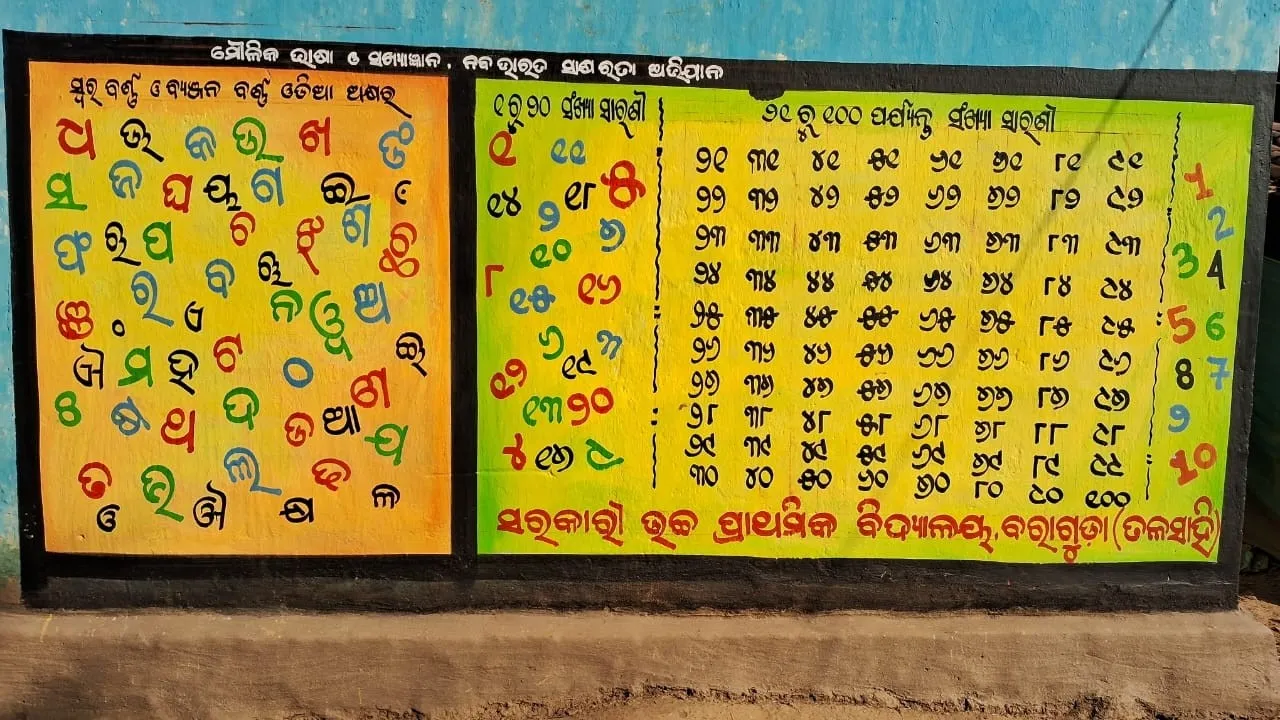 ମୌଳିକ ଭାଷା ଓ ସଖ୍ୟାଜ୍ଞାନ, ନବ ଭାରତ ସାକ୍ଷରତା ଅଭିଯାନ
ସ୍ୱର ବର୍ଣ୍ଣ ଓ ବ୍ୟଞ୍ଜନ ବର୍ଣ୍ଣ ଓଡିଆ ଅକ୍ଷର
ଧ ଊ କ ଉ ଖ ଙ
ସ ଜ ଘ ୟ ଗ ଇ ୯
ଫ ର ପ ଚ ଝ ଶ ଛ
ର ବ ନ ୱ ଅ
ଞ ଠ ଏ
ଐ ମ ହ ଟ ଠ ଈ
ଷ ଥ ଦ ଡ ଆ ଣ ଯ
ତ ଭ ଲ ଢ
ଓ ଔ କ୍ଷ ଳ
୧ ରୁ ୨୦ ସଂଖ୍ୟା ସାରଣୀ
୧ ୧୧
୧୪ ୨ ୧୮ ୫
୧୦ ୭
୮ ୧୫ ୧୬
୬ ୧୯ ୩
୧୨ ୧୩ ୨୦
୪ ୧୭ ୯
୨୧ ରୁ ୧୦୦ ପର୍ଯ୍ୟନ୍ତ ସଂଖ୍ୟା ସାରଣୀ
୨୧ ୩୧ ୪୧ ୫୧ ୬୧ ୭୧ ୮୧ ୯୧
୨୨ ୩୨ ୪୨ ୫୨ ୬୨ ୭୨ ୮୨ ୯୨
୨୩ ୩୩ ୪୩ ୫୩ ୬୩ ୭୩ ୮୩ ୯୩
୨୪ ୩୪ ୪୪ ୫୪ ୬୪ ୭୪ ୮୪ ୯୪
୨୫ ୩୫ ୪୫ ୫୫ ୬୫ ୭୫ ୮୫ ୯୫
୨୬ ୩୬ ୪୬ ୫୬ ୬୬ ୭୬ ୮୬ ୯୬
୨୭ ୩୭ ୪୭ ୫୭ ୬୭ ୭୭ ୮୭ ୯୭
୨୮ ୩୮ ୪୮ ୫୮ ୬୮ ୭୮ ୮୮ ୯୮
୨୯ ୩୯ ୪୯ ୫୯ ୬୯ ୭୯ ୮୯ ୯୯
୩୦ ୪୦ ୫୦ ୬୦ ୭୦ ୮୦ ୯୦ ୧୦୦
1
2
3 4
5 6
8 7
9
10
ସରକାରୀ ଉଚ୍ଚ ପ୍ରାଥମିକ ବିଦ୍ୟାଳୟ, ବରାଗୁଡ଼ା (ତଳସାହି)